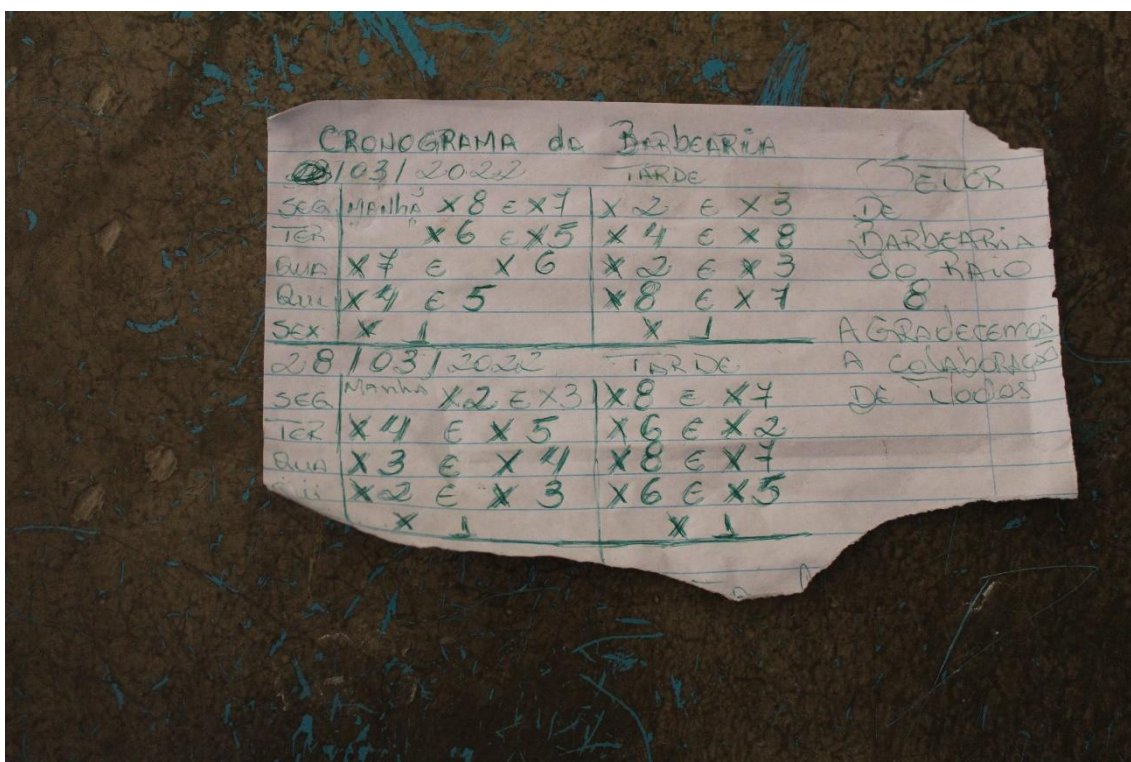 CRONOGRAMA da BARbEARiA
/03/2022 TARDE
SEG MANhÃ X8 E X7 X2 E X3
TER " " X6 E X5 X4 E X8
QUA X7 E X6 X2 E X3
Qui X4 E 5 X8 E X7
SEX X 1 X 1
28/03/2022 TARDE
SEG MANhÃ X2 E X3 X8 E X7
TER X4 E X5 X6 E X2
QUA X3 E X4 X8 E X7
Qui X2 E X3 X6 E X5
X 1 X 1
SETOR
DE
BARbEARiA
do RAiO
8
AGRADECEMOS
A COlAbORAÇÃO
DE TOdOS